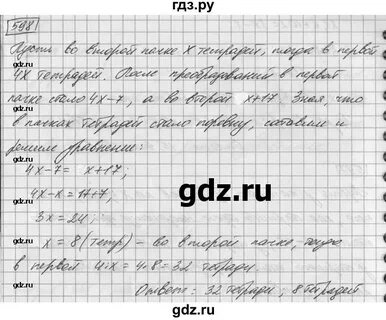 гдз.ру
598
Пусть во второй пачке x тетрадей, тогда в первой
4x тетрадей. После преобразований в первой
пачке стало 4x-7, а во второй x+17. Зная, что
в пачках тетрадей стало поровну, составим и
решим уравнение:
4x-7= x+17;
4x-x=17+7;
gdz.ru
3x=24;
x=8(тетр) - во второй пачке, тогда
в первой 4·x=4·8=32 тетради.
Ответ: 32 тетради; 8 тетрадей
gdz.ru